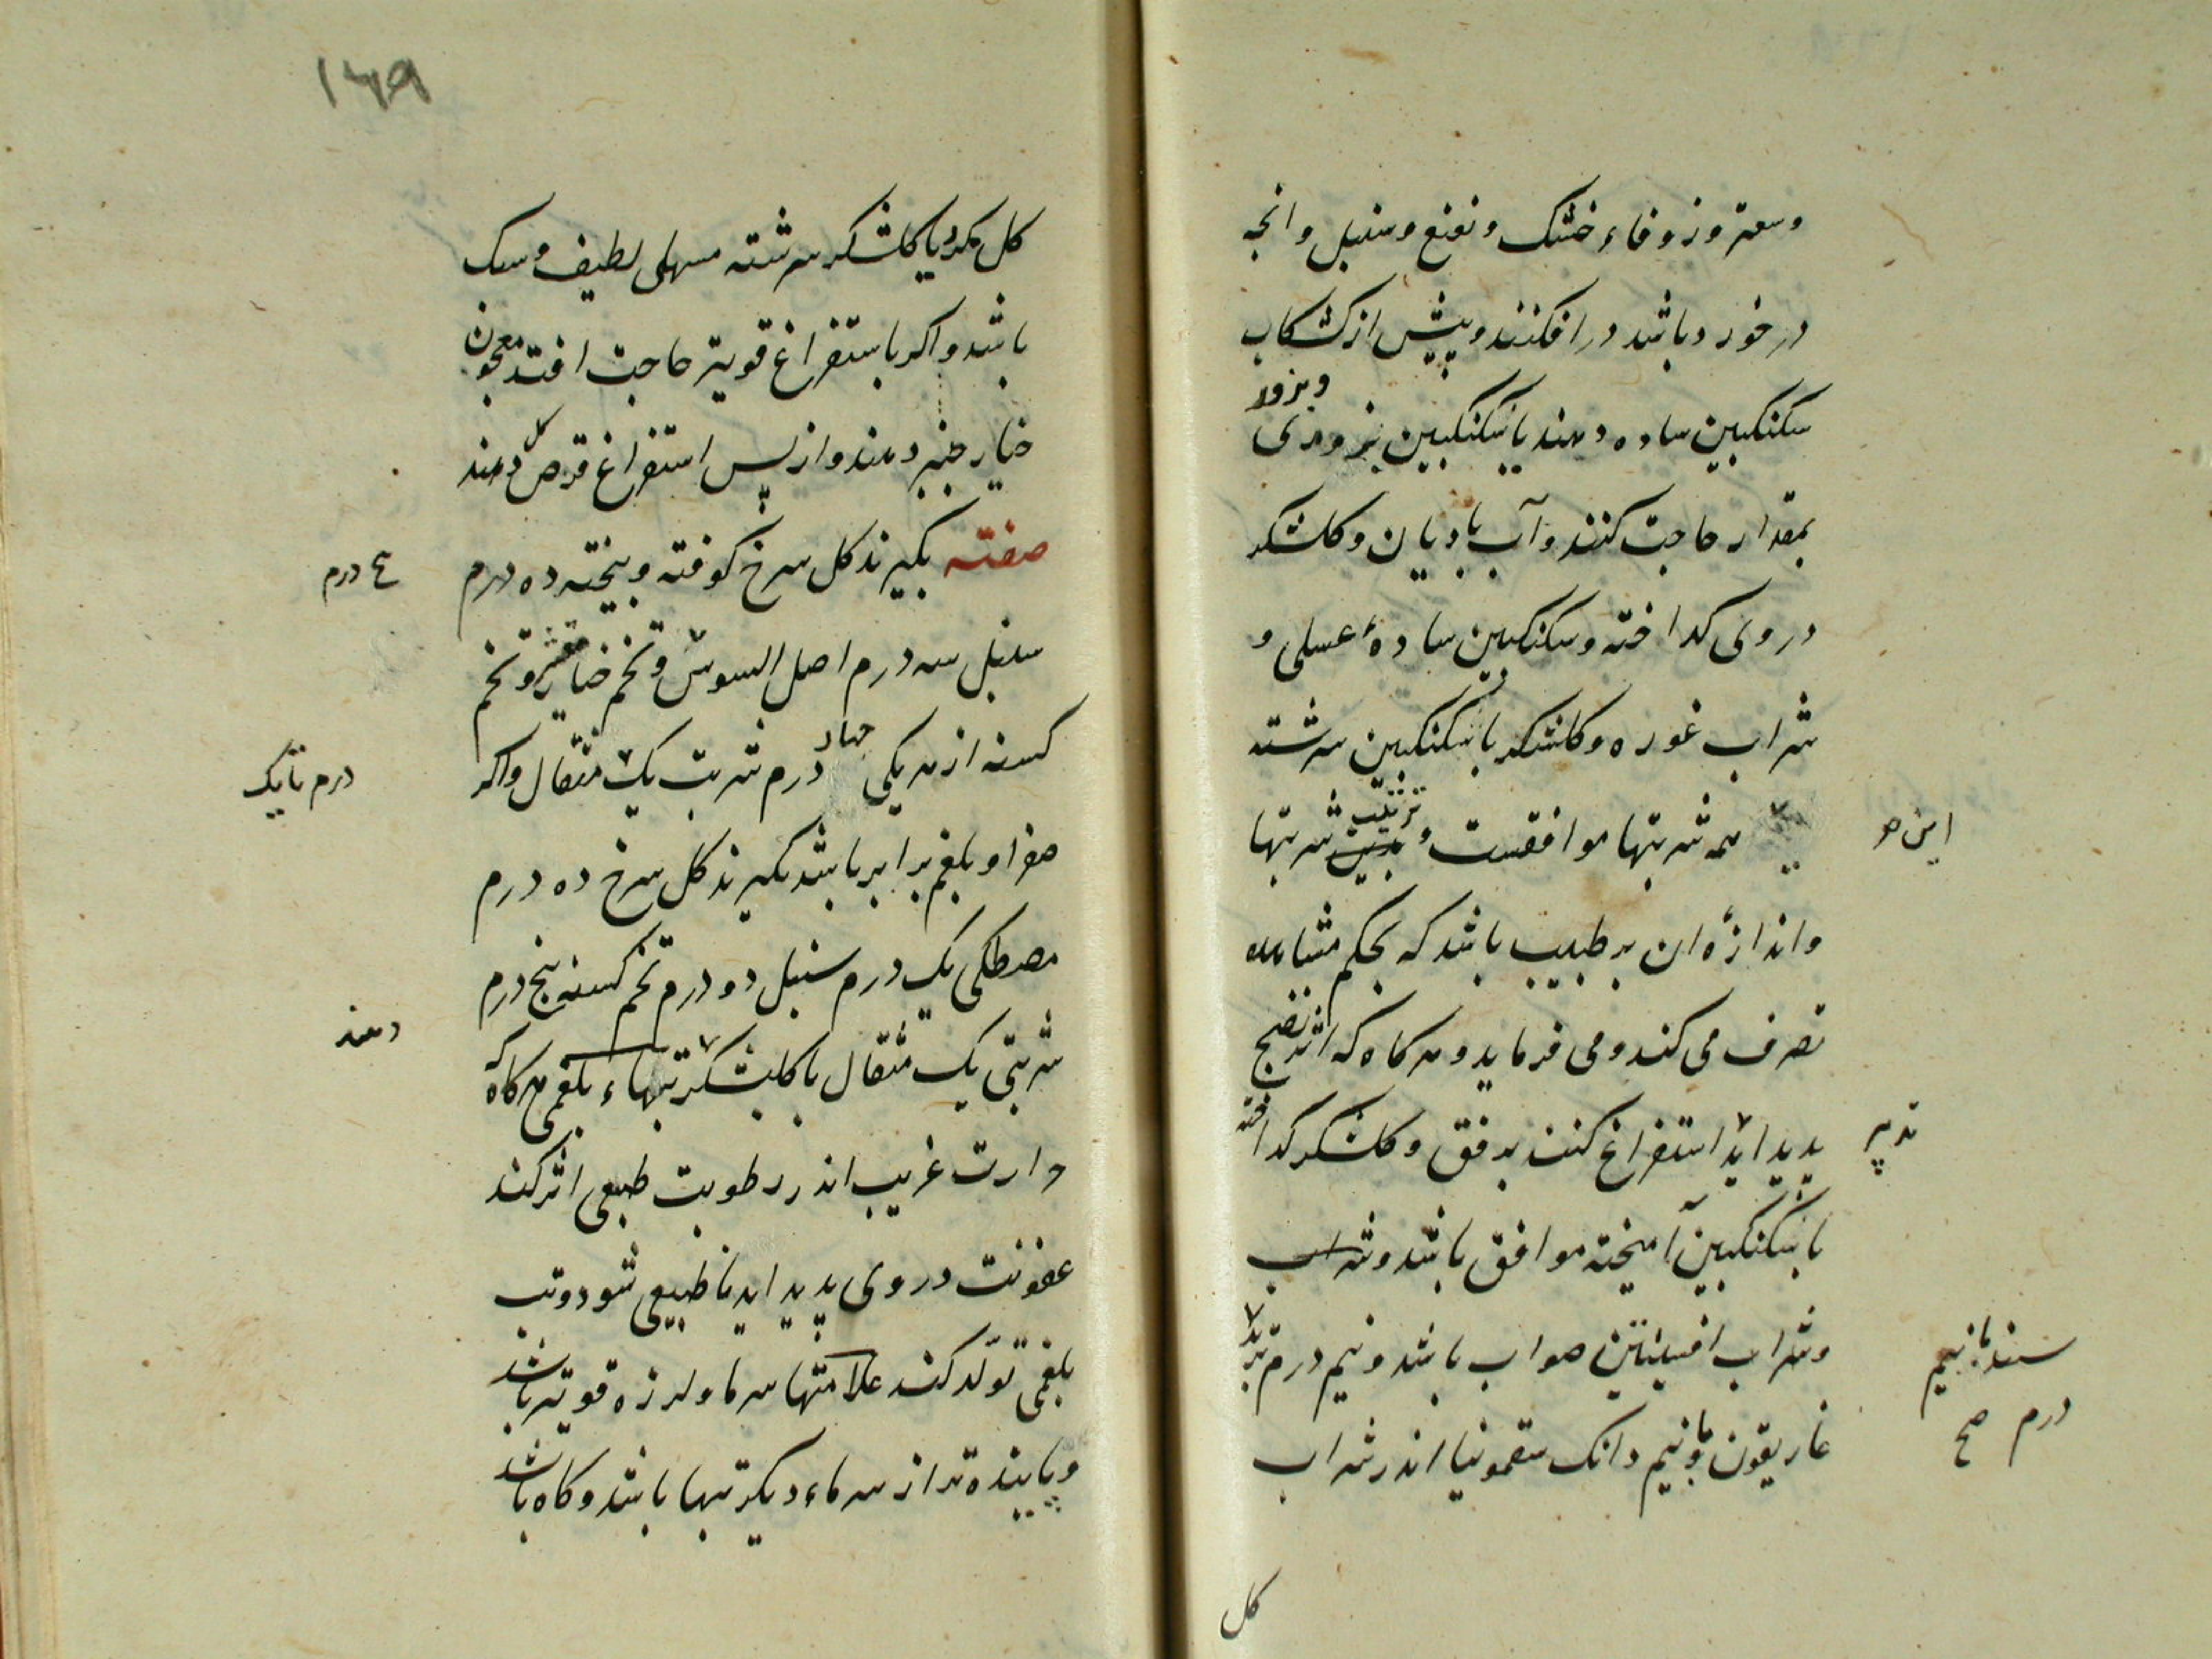 وسعتر وزوفاء خشک و نعنع وسنبل وانجه
در خورد باشد در افکنند و پیش از کشکاب
سکنکبین ساده دهند یا سکنکبین بزوری
وبزور
بمقدار حاجت کنند و آب بادیان و کلشکر
در وی کداخته وسکنکبین سادهٔ عسلی و
شراب غوره و کلشکر با سکنکبین سرشته
همه شربتها موافقست و ترتیب شربتها
این هم
واندازهٔ ان بر طبیب باشد که بحکم مشاهده
تصرف می کند و می فرماید و هر کاه که اثر نضج
پدید اید استفراغ کنند برفق و کلشکر کداخته
تدبیر
با سکنکبین آمیخته موافق باشد و شراب
وشراب افسنتین صواب باشد و نیم درم تربد
غاریقون و نیم دانک سقمونیا اندر شراب
درم صح
کل
۱۶۹
کل مکرر یا کلشکر سرشته مسهلی لطیف و سبک
باشد و اکر باستفراغ قویتر حاجت افتد معجون
خیارجنبر دهند و از پس استفراغ قرص کل دهند
صفته بکیرند کل سرخ کوفته وبیخته ده درم
درم
سنبل سه درم اصل السوس و تخم خیار مقشر و تخم
کسنه از هر یکی چهار درم شربت یک مثقال واکر
درم تا یک
صفرا و بلغم برابر باشد بکیرند کل سرخ ده درم
مصطکی یک درم سنبل دو درم تخم کسنه پنج درم
دهند
شربتی یک مثقال با کلشکر تبهاء بلغمی هر کاه که
حرارت غریب اندر رطوبت طبیعی اثر کند
عفونت در وی پدید اید نا طبیعی شود و تب
بلغمی تولّد کند علامتها سرما و لرزه قویتر باشد
و پاینده تر از سرماء دیکر تبها باشد و کاه باشد